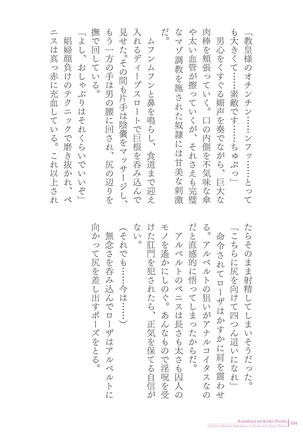 「教皇様のオチンチン……ンフッ……とって
も大きくて……素敵です……ちゅぷっ」
男心をくすぐる媚声を奏でながら、巨大な
肉棒を頬張っていく。口の内側を不気味な傘
や太い血管が擦っていくが、それさえも完璧
なマゾ調教を施された奴隷には甘美な刺激
ムフンムフンと鼻を鳴らし、食道まで迎え
入れるディープスロートで巨根を呑み込んで
見せた。その間も片手は陰嚢をマッサージし、
もう一方の手は男の腰に回され、尻の辺りを
撫で回している。
「よし、おしゃぶりはそれくらいでいいぞ」
娼婦顔負けのテクニックで磨き抜かれ、ペ
ニスは真っ赤に充血している。これ以上され
たらそのまま射精してしまいそうだった。
「こちらに尻を向けて四つん這いになれ」
命令されてローザはかすかに肩を震わせ
る。アルベルトの狙いがアナルコイタスなの
だと直感的に悟ってしまったからだ。
アルベルトのペニスは長さも太さも囚人の
モノを遙かにしのぐ。あんなもので淫呪を受
けた肛門を犯されたら、正気を保てる自信が
ない。
（それでも……今は……）
無念さを呑み込んでローザはアルベルトに
向かって尻を差し出すポーズをとる。